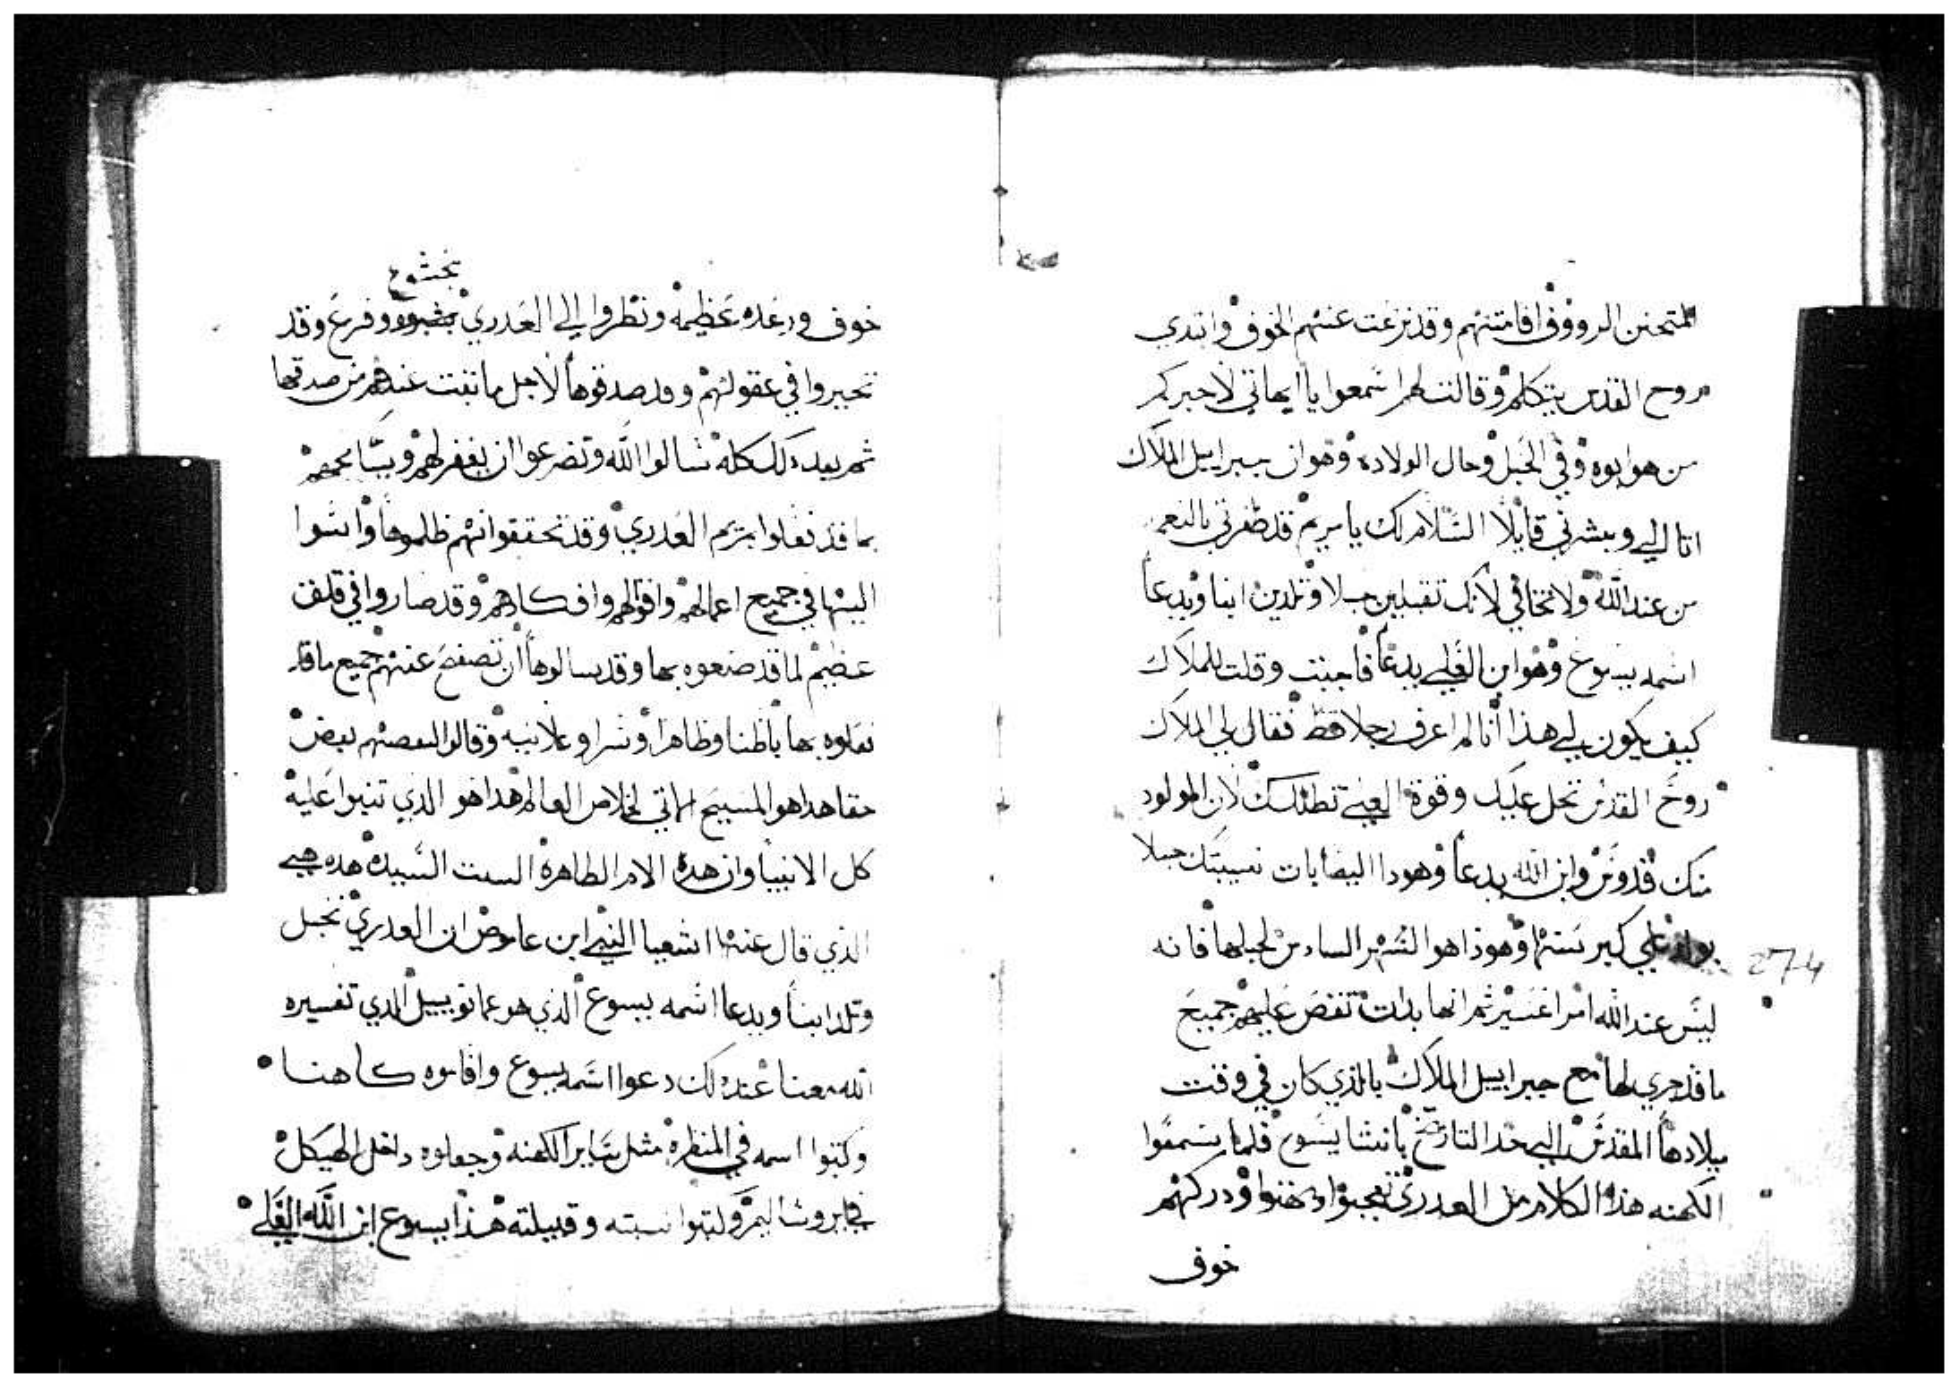 المتحنن الرووف اقامتهم وقد نزعت عنهم الخوف وابتدي
روح القدس يتكلم وقالت لهم اسمعوا يا ايهاتي لاخبركم
من هو ابوه وفي الحبل وحال الولاده وهو ان جبراييل الملاك
اتا الي وبشرني قايلا السلام لك يا مريم قد ظفرتي بالنعمه
من عند الله ولا تخافي لانك تقبلين حبلا وتلدين ابنا ويدعا
اسمه يسوع وهو ابن العلي يدعا فاجبت وقلت للملاك
كيف يكون لي هذا انا لم اعرف رجلا قط فقال لي الملاك
روح القدس تحل عليك وقوة العلي تظلك لان المولود
منك قدوس وابن الله يدعا وهودا اليصابات نسيبتك حبلا
علي كبر سنها وهوذا هو الشهر السادس لحبلها فانه
ليس عند الله امرا عسير ثم انها بدات تقص عليهم جميع
ما قد جري لها مع جبراييل الملاك بالذي كان في وقت
ميلادها المقدس الي حد التاريخ بانتشا يسوع فلما سمعوا
الكهنه هذا الكلام من العدري تعجبوا وبهتوا ودركهم
خوف
274
بخشوع
خوف ورعده عظيمه ونظروا الي العدري وفزع وقد
تحيروا في عقولهم وقد صدقوها لاجل ما تبت عندهم من صدقها
ثم بعد دلك كله سالوا الله وتضرعوا ان يغفر لهم ويسامحهم
بما قد فعلوا بمريم العدري وقد تحققوا انهم ظلموها واسوا
اليها في جميع اعمالهم واقوالهم وافكارهم وقد صاروا في قلق
عظيم لما قد صنعوه بها وقد سالوها ان تصفح عنهم جميع ما قد
فعلوه بها باطنا وظاهرا وسرا وعلانيه وقالوا لبعضهم بعض
حقا هدا هو المسيح الاتي لخلاص العالم هدا هو الذي تنبوا عليه
كل الانبيا وان هده الام الطاهرة الست السيدة هده هي
الذي قال عنها اشعيا النبي ابن عاموص ان العدري تحبل
وتلد ابنا ويدعا اسمه يسوع الذي هو عمانوييل الدي تفسيره
الله معنا عند دلك دعوا اسمه يسوع واقاموه كاهنا
وكتبوا اسمه في المنظرة مثل ساير الكهنه وجعلوه داخل الهيكل
في ايروشاليم وكتبوا نسبته وقبيلته هذا يسوع ابن الله العلي